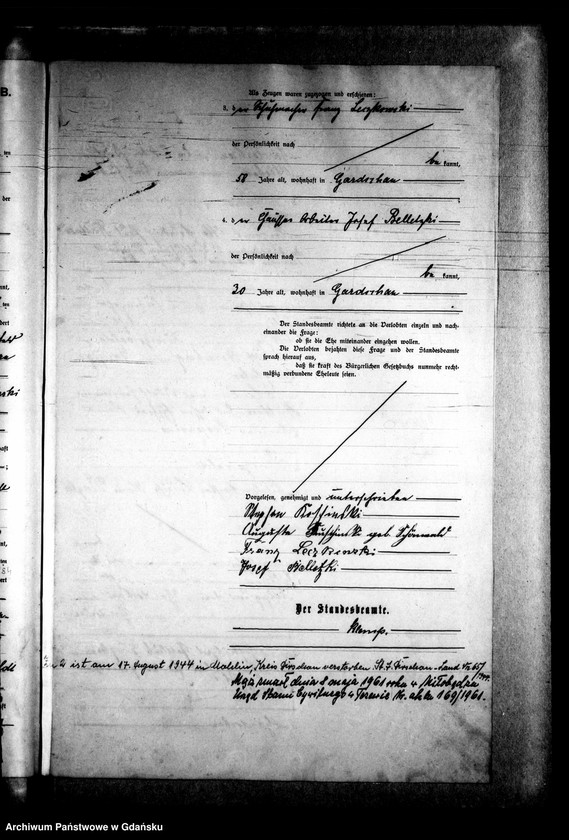 B.
Als Zeugen waren zugezogen und erschienen:
3. der Schuhmacher Franz Leczkowski
der Persönlichkeit nach
be kannt,
58 Jahre alt, wohnhaft in Gardschau
4. der Arbeiter Josef Belletzki
der Persönlichkeit nach
be kannt,
30 Jahre alt, wohnhaft in Gardschau
Der Standesbeamte richtete an die Verlobten einzeln und nach-
einander die Frage:
ob sie die Ehe miteinander eingehen wollen.
Die Verlobten bejahten diese Frage und der Standesbeamte
sprach hierauf aus,
daß sie kraft des Bürgerlichen Gesetzbuchs nunmehr recht-
mäßig verbundene Eheleute seien.
Vorgelesen, genehmigt und unterschrieben
Stephan
Auguste geb.
Franz Leczkowski
Josef Belletzki
Der Standesbeamte.
ist am 17. August 1944 in Malelin, Kreis Dirschau verstorben. St. A. Dirschau-Land
Mąż zmarł dnia 8 maja 1961 roku w Miłobądzu
Urząd Stanu Cywilnego w Tczewie Nr. aktu 169/1961.
Archiwum Państwowe w Gdańsku